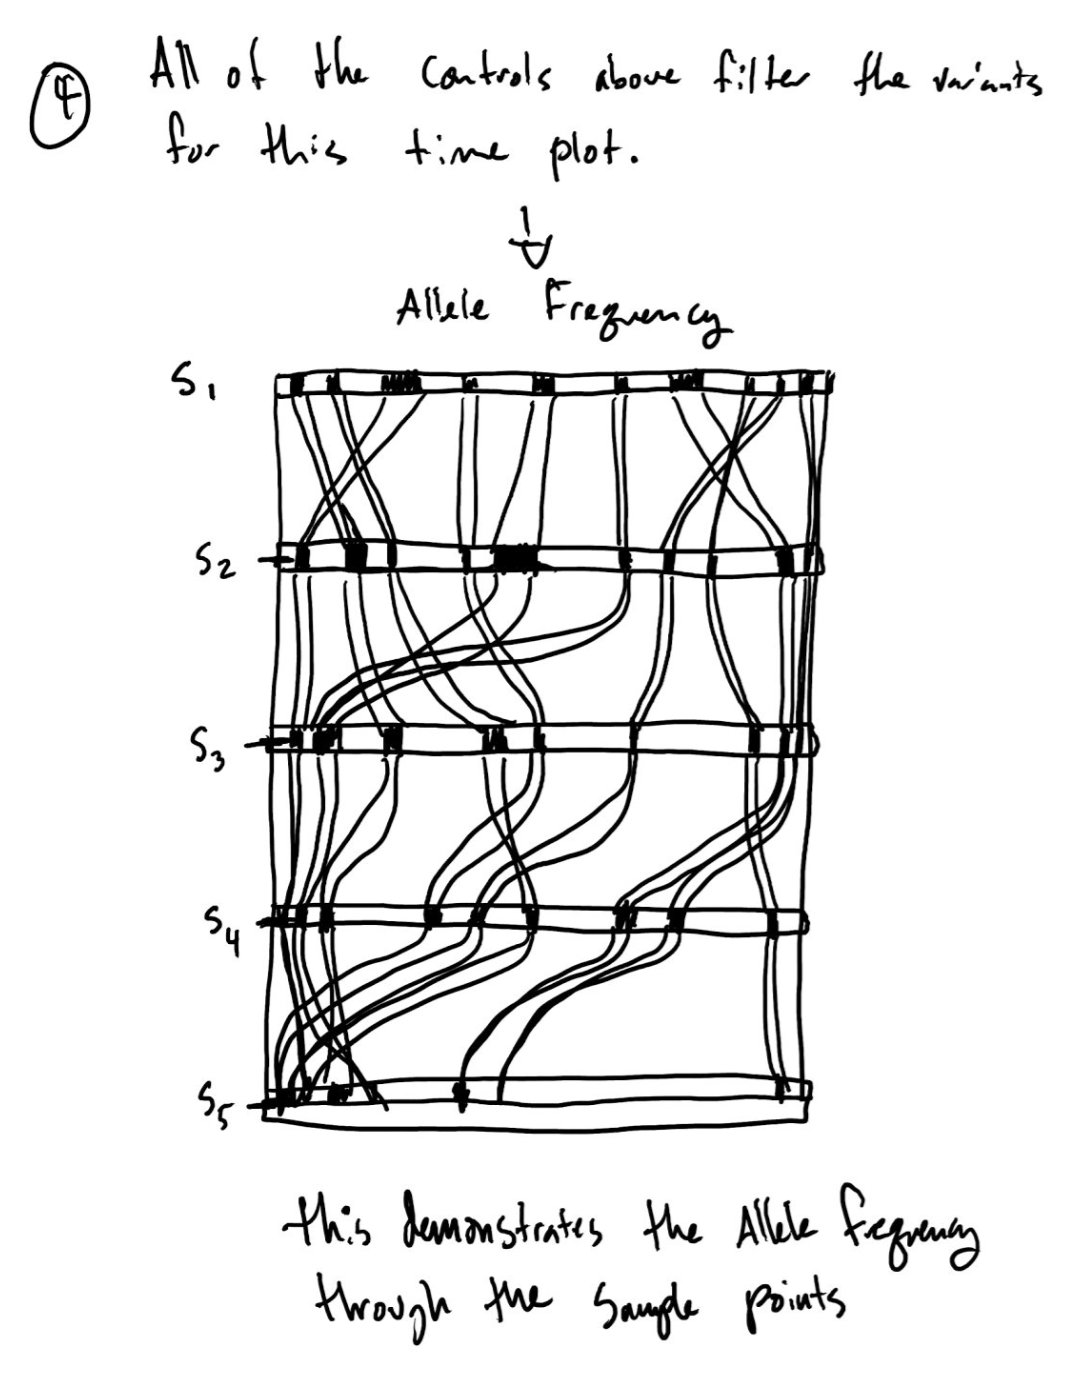 4
All of the controls above filter the variants
for this time plot.
Allele Frequency
S1
S2
S3
S4
S5
this demonstrates the Allele frequency
through the sample points